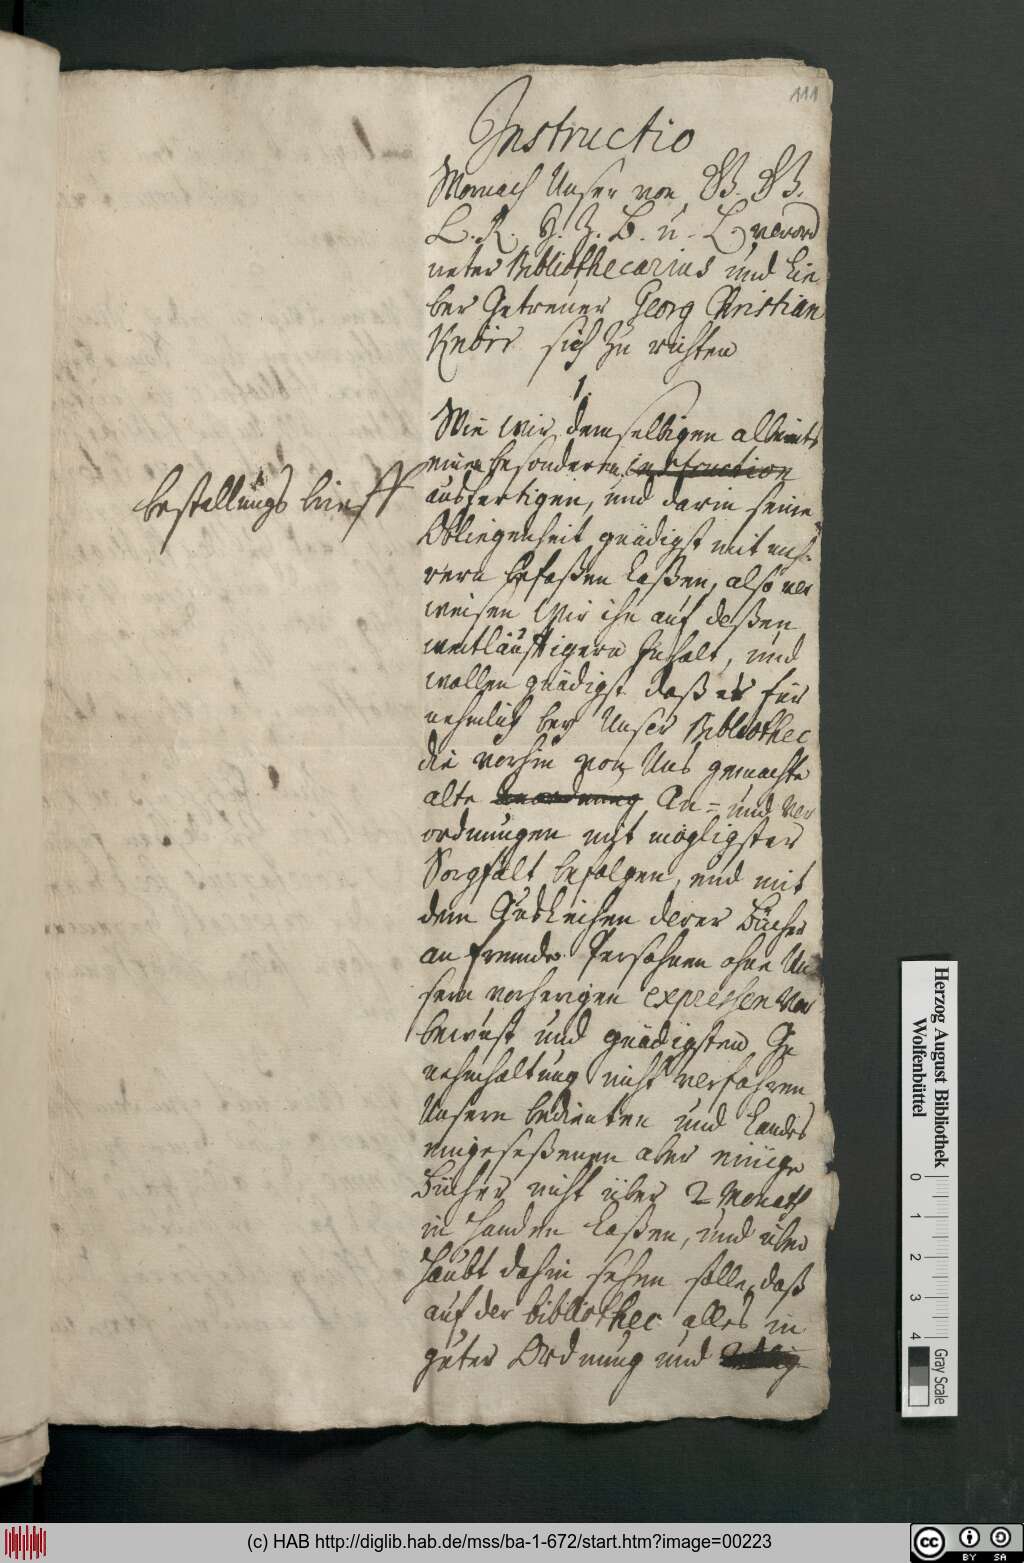 111
Instructio
Wornach Unser von G. G.
L. R. H. Z. B. u. L. verord
neter Bibliothecarius und Lie
ber Getreuer Georg Christian
Knörr sich zu richten
1.
Wie wir demselbigen allbereits
einen besonderen instruction
bestellungs brieff
ausfertigen, und darin seine
Obliegenheit gnädigst mit meh-
rern befaßen laßen, also ver
weisen Wir ihn auf deßen
weitläufftigern Inhalt, und
wollen gnädigst daß er für
nehmlich bey Unser Bibliothec
die vorhin von Uns gemachte
alte verordnung An= und Ver
ordnungen mit mögligster
Sorgfalt befolgen, und mit
dem Ausleihen derer Bücher
an fremde Persohnen ohne Un
sern vorherigen expressen Vor
bewust und gnädigsten Ge
nehmhaltung nicht verfahren
Unsern bedienten und Landes
eingeseßenen aber einige
Bücher nicht über 2 Monath
in Handen laßen, und über
haubt dahin sehen solle, daß
auf der bibliothec alles in
guter Ordnung und
Herzog August Bibliothek
Wolfenbüttel
0 1 2 3 4
Gray Scale
(c) HAB http://diglib.hab.de/mss/ba-1-672/start.htm?image=00223
cc BY SA